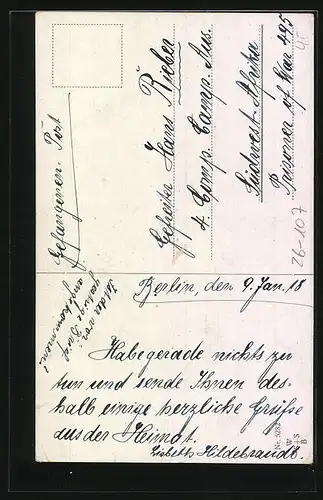 Gefangenen-Post
Gefreiten Hans Rieber
4 Comp. Camp Aus.
Südwest-Afrika
Prisoner of War 495
26-107
Berlin, den 9. Jan. 18
Ist das vor
angekommen?
Habe gerade nichts zu
tun und sende Ihnen des-
halb einige herzliche Grüsse
aus der Heimat.
Lisbeth Hildebrandt.
Nr. 5284
W
+S
B